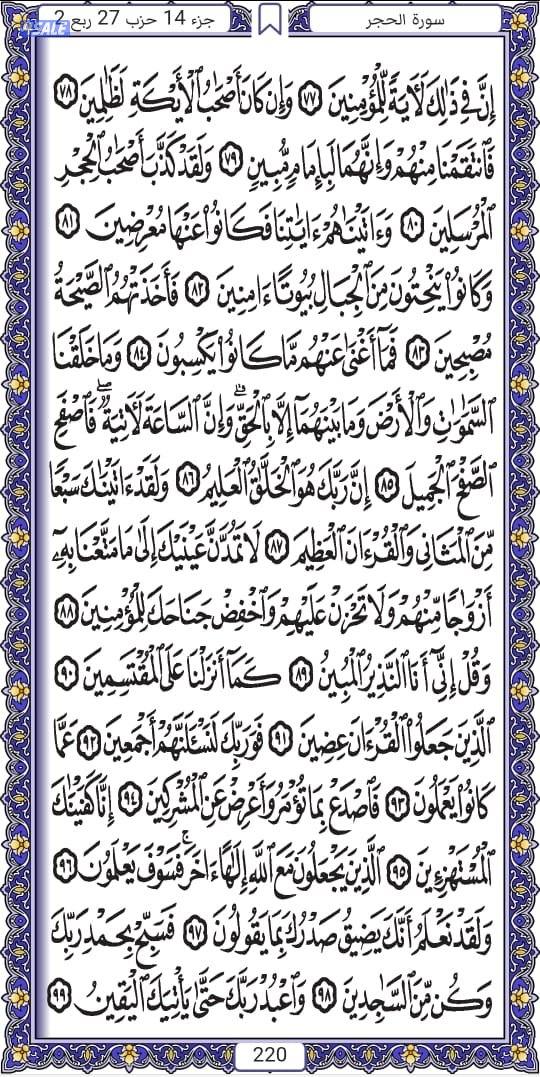 سورة الحجر
جزء 14 حزب 27 ربع 2
4SALE
إِنَّ فِي ذَٰلِكَ لَآيَةً لِّلْمُؤْمِنِينَ ٧٧ وَإِن كَانَ أَصْحَٰبُ ٱلْأَيْكَةِ لَظَٰلِمِينَ ٧٨
فَٱنتَقَمْنَا مِنْهُمْ وَإِنَّهُمَا لَبِإِمَامٍ مُّبِينٍ ٧٩ وَلَقَدْ كَذَّبَ أَصْحَٰبُ ٱلْحِجْرِ
ٱلْمُرْسَلِينَ ٨٠ وَءَاتَيْنَٰهُمْ ءَايَٰتِنَا فَكَانُوا۟ عَنْهَا مُعْرِضِينَ ٨١
وَكَانُوا۟ يَنْحِتُونَ مِنَ ٱلْجِبَالِ بُيُوتًا ءَامِنِينَ ٨٢ فَأَخَذَتْهُمُ ٱلصَّيْحَةُ
مُصْبِحِينَ ٨٣ فَمَآ أَغْنَىٰ عَنْهُم مَّا كَانُوا۟ يَكْسِبُونَ ٨٤ وَمَا خَلَقْنَا
ٱلسَّمَٰوَٰتِ وَٱلْأَرْضَ وَمَا بَيْنَهُمَآ إِلَّا بِٱلْحَقِّ ۗ وَإِنَّ ٱلسَّاعَةَ لَءَاتِيَةٌ ۖ فَٱصْفَحِ
ٱلصَّفْحَ ٱلْجَمِيلَ ٨٥ إِنَّ رَبَّكَ هُوَ ٱلْخَلَّٰقُ ٱلْعَلِيمُ ٨٦ وَلَقَدْ ءَاتَيْنَٰكَ سَبْعًا
مِّنَ ٱلْمَثَانِي وَٱلْقُرْءَانَ ٱلْعَظِيمَ ٨٧ لَا تَمُدَّنَّ عَيْنَيْكَ إِلَىٰ مَا مَتَّعْنَا بِهِۦٓ
أَزْوَٰجًا مِّنْهُمْ وَلَا تَحْزَنْ عَلَيْهِمْ وَٱخْفِضْ جَنَاحَكَ لِلْمُؤْمِنِينَ ٨٨
وَقُلْ إِنِّيٓ أَنَا ٱلنَّذِيرُ ٱلْمُبِينُ ٨٩ كَمَآ أَنزَلْنَا عَلَى ٱلْمُقْتَسِمِينَ ٩٠
ٱلَّذِينَ جَعَلُوا۟ ٱلْقُرْءَانَ عِضِينَ ٩١ فَوَرَبِّكَ لَنَسْـَٔلَنَّهُمْ أَجْمَعِينَ ٩٢ عَمَّا
كَانُوا۟ يَعْمَلُونَ ٩٣ فَٱصْدَعْ بِمَا تُؤْمَرُ وَأَعْرِضْ عَنِ ٱلْمُشْرِكِينَ ٩٤ إِنَّا كَفَيْنَٰكَ
ٱلْمُسْتَهْزِءِينَ ٩٥ ٱلَّذِينَ يَجْعَلُونَ مَعَ ٱللَّهِ إِلَٰهًا ءَاخَرَ ۚ فَسَوْفَ يَعْلَمُونَ ٩٦
وَلَقَدْ نَعْلَمُ أَنَّكَ يَضِيقُ صَدْرُكَ بِمَا يَقُولُونَ ٩٧ فَسَبِّحْ بِحَمْدِ رَبِّكَ
وَكُن مِّنَ ٱلسَّٰجِدِينَ ٩٨ وَٱعْبُدْ رَبَّكَ حَتَّىٰ يَأْتِيَكَ ٱلْيَقِينُ ٩٩
220